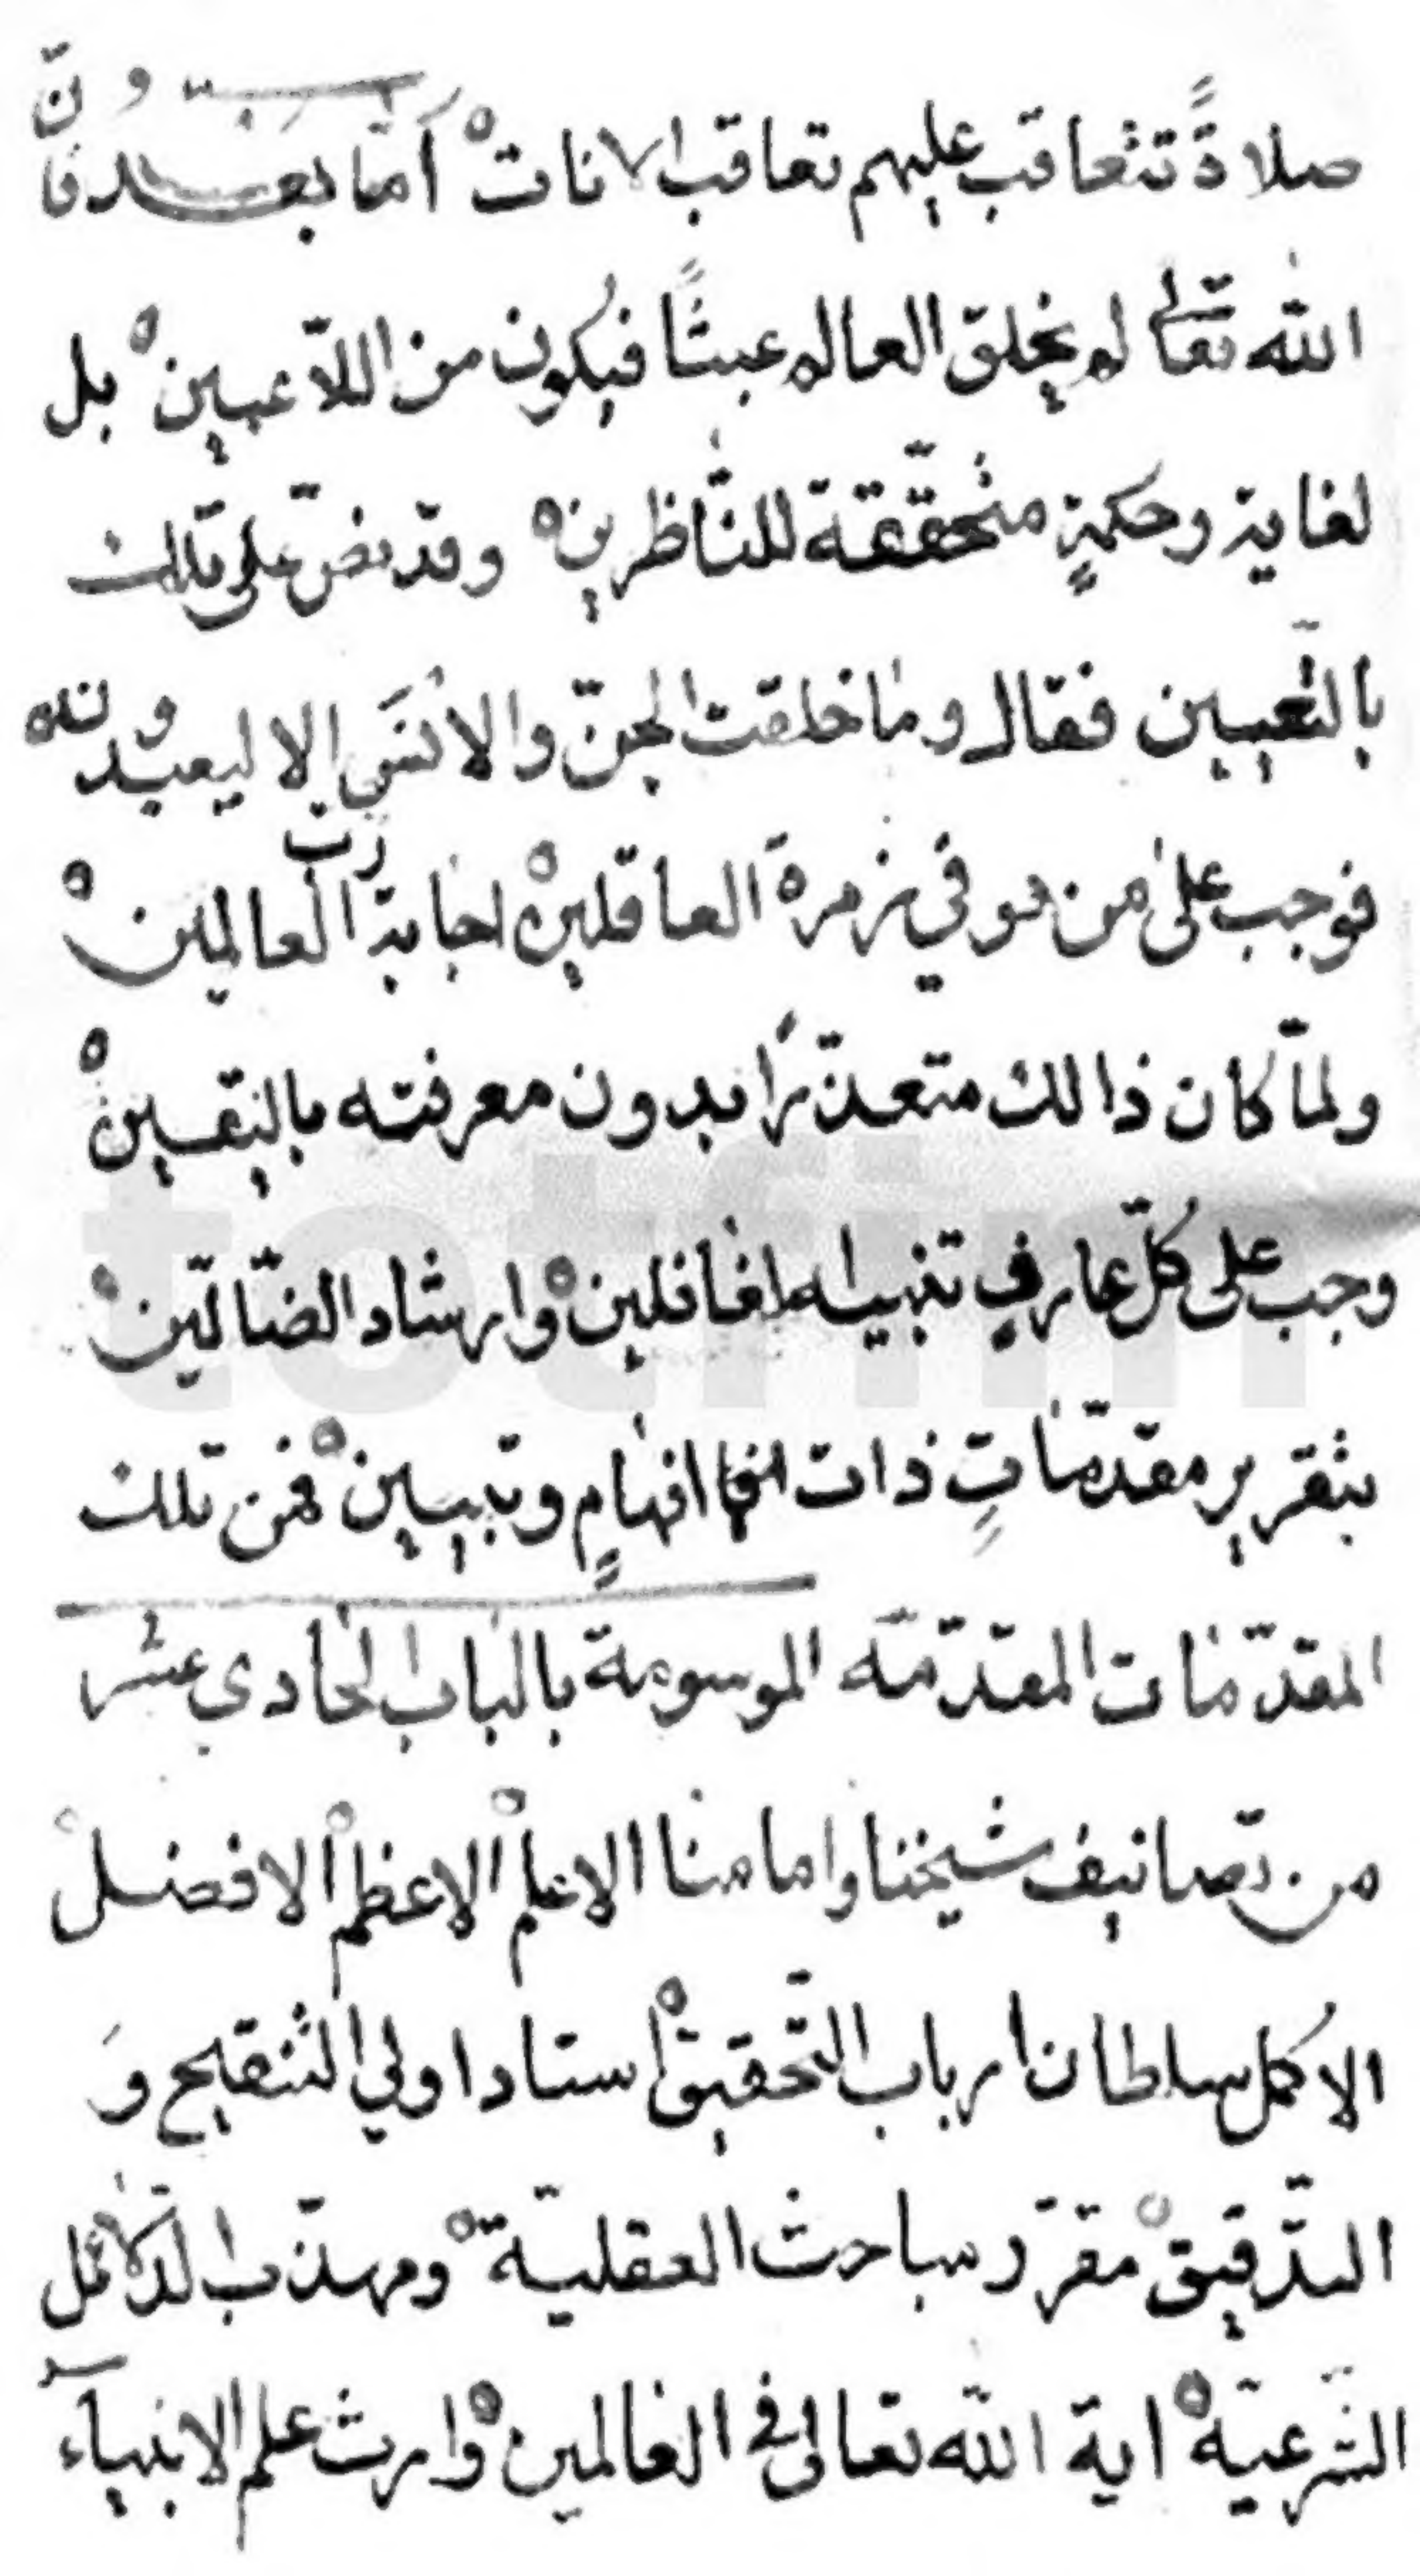 صلاةً تتعاقب عليهم تعاقب الانات أما بعد فانّ
الله تعالى لم يخلق العالم عبثًا فيكون من اللّاعبين بل
لغاية وحكمةٍ متحقّقة للنّاظرين وقد نصّ على تلك
بالتّعيين فقال وما خلقت الجنّ والانس الا ليعبدون
فوجب على من هو في زمرة العاقلين اجابة ربّ العالمين
ولمّا كان ذالك متعذّرًا بدون معرفته باليقين
وجب على كلّ عارفٍ تنبيه الغافلين وارشاد الضّالّين
بتقرير مقدّماتٍ ذات افهامٍ وتبيين فمن تلك
المقدّمات المقدّمة الموسومة بالباب الحادي عشر
من تصانيف شيخنا وامامنا الاعلم الاعظم الافضل
الاكمل سلطان ارباب التّحقيق استاد اولي التنقيح وَ
التّدقيق مقرّر مباحث العقليّة ومهذّب الدّلائل
الشّرعيّة اية الله تعالى في العالمين وارث علم الانبيآء
totfim